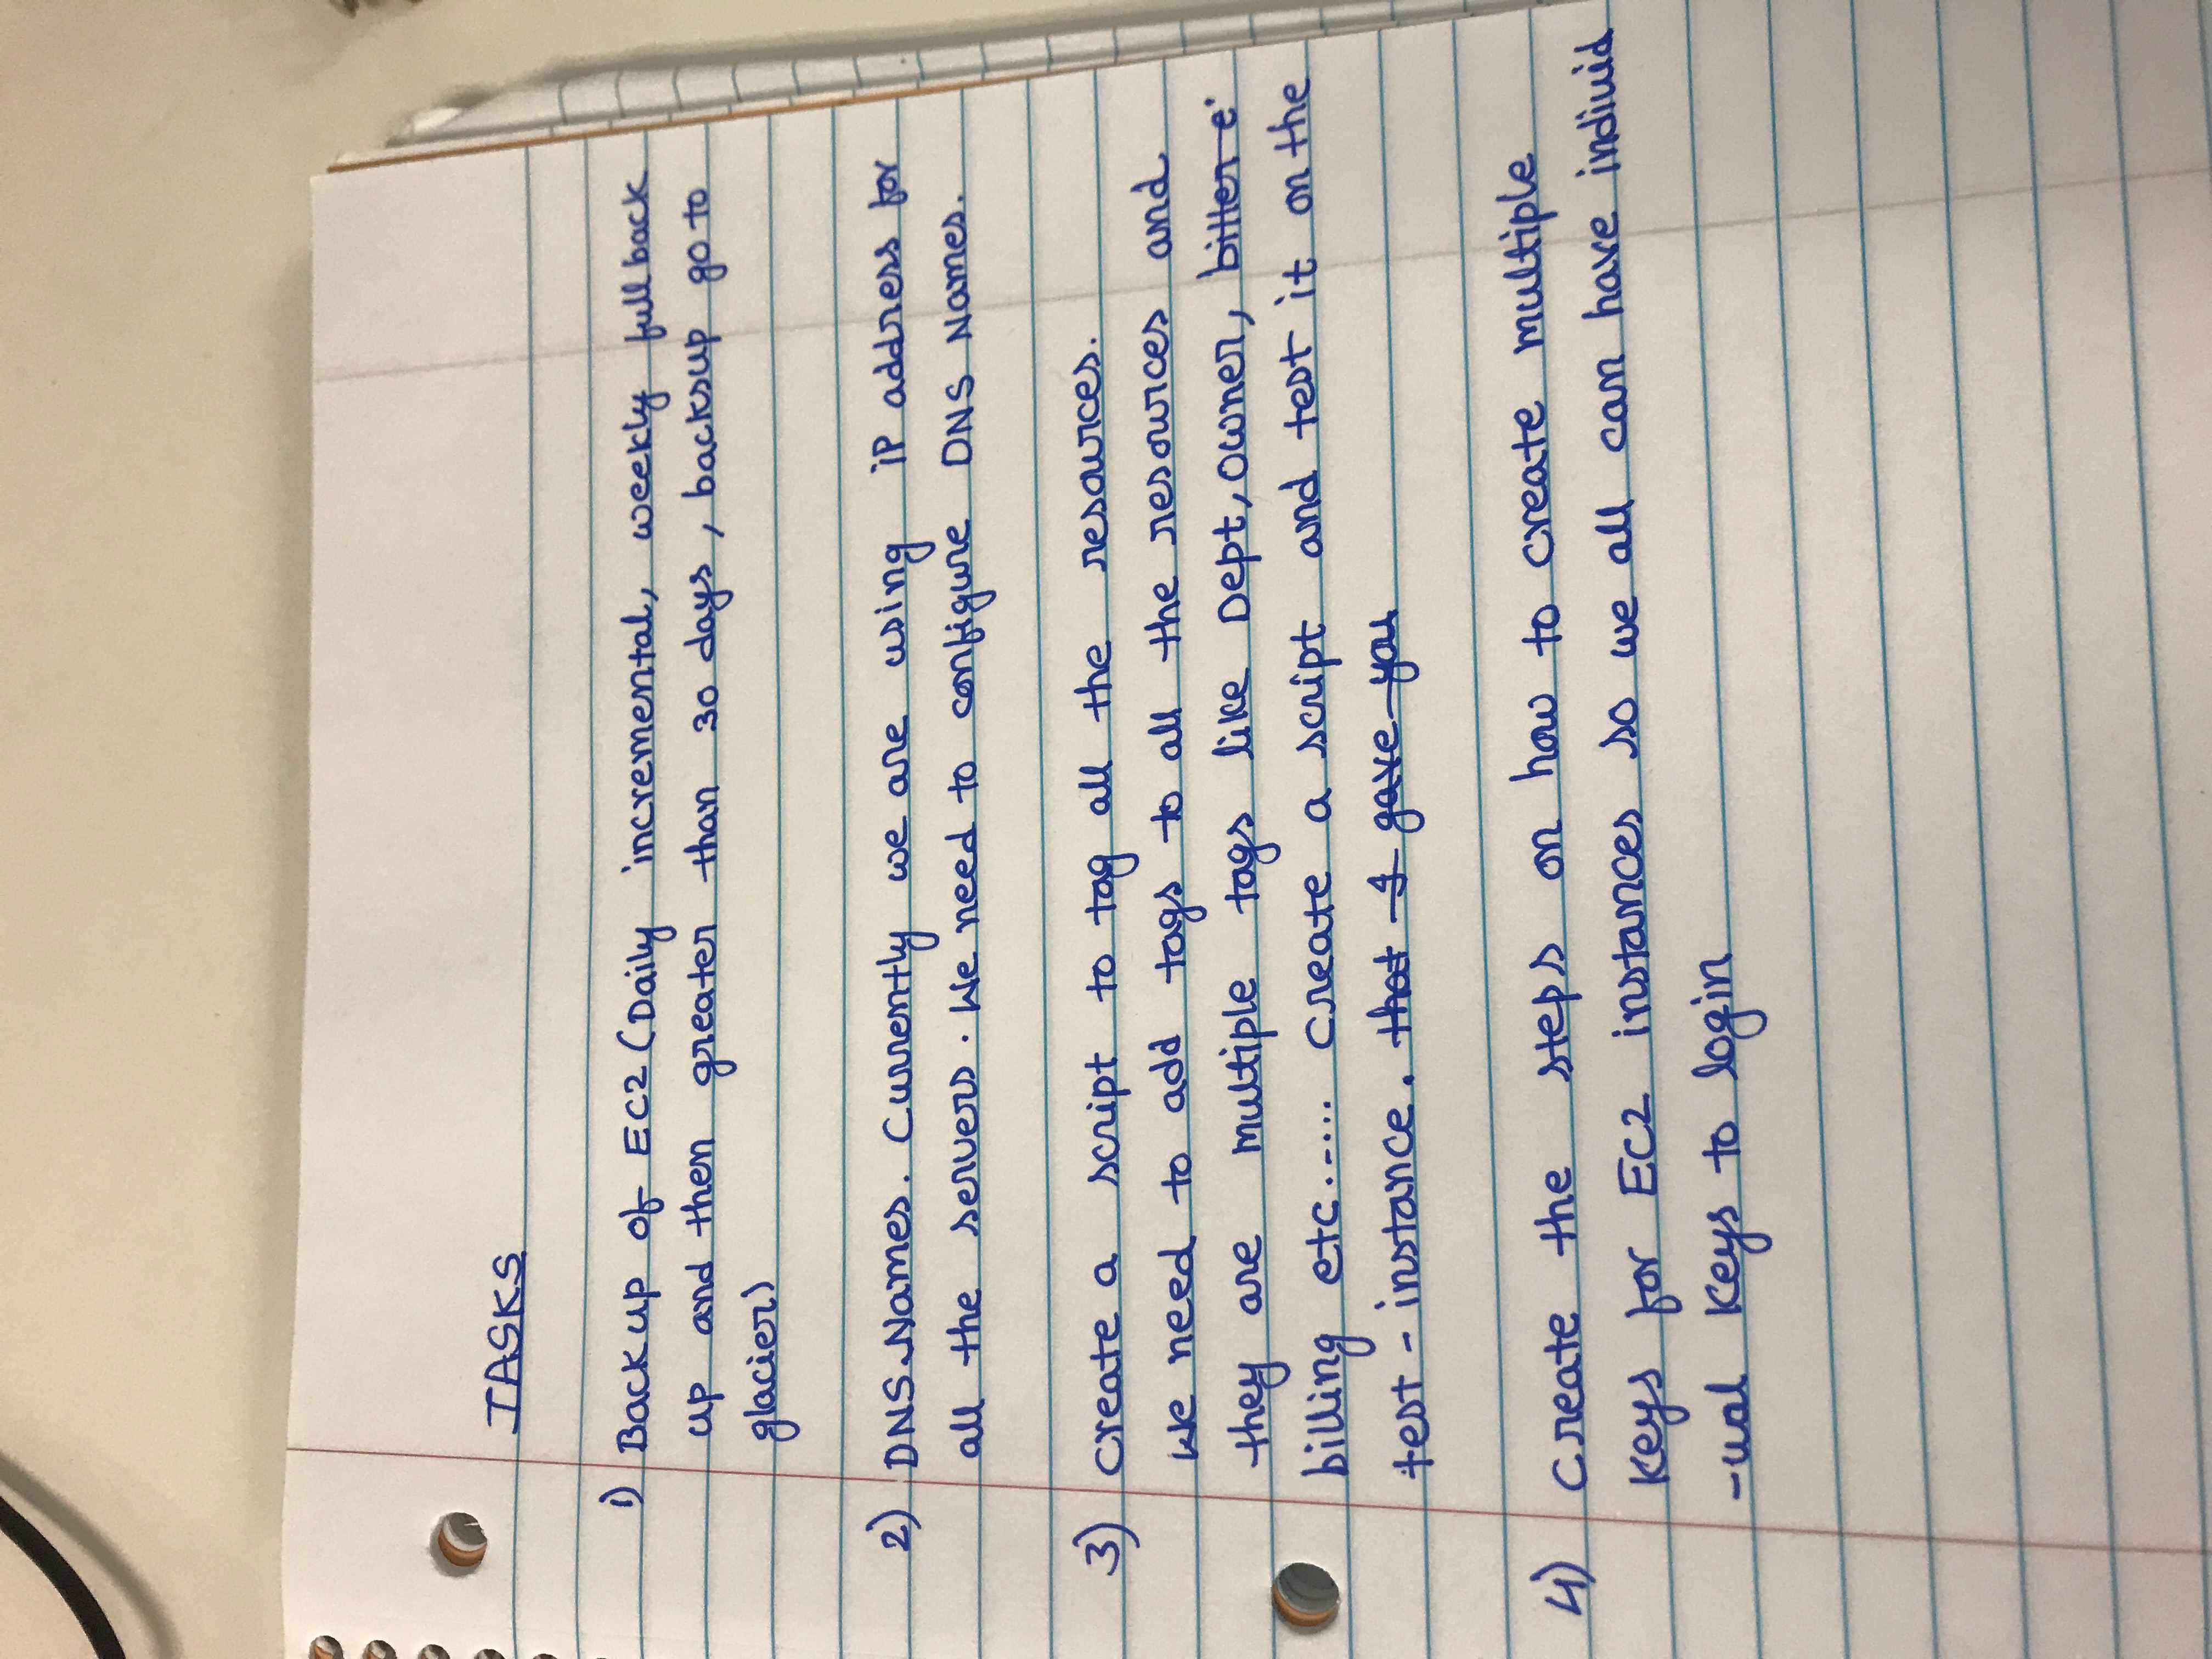 TASKS
1) Back up of EC2 (Daily incremental, weekly full back
up and then greater than 30 days, backsup go to
glacier)
2) DNS Names. Currently we are using iP address for
all the servers. We need to configure DNS Names.
3) create a script to tag all the resources.
We need to add tags to all the resources and
they are multiple tags like Dept, owner,
billing etc...... create a script and test it on the
test - instance. that I gave you
4) create the steps on how to create multiple
keys for EC2 instances so we all can have individ
-ual keys to login